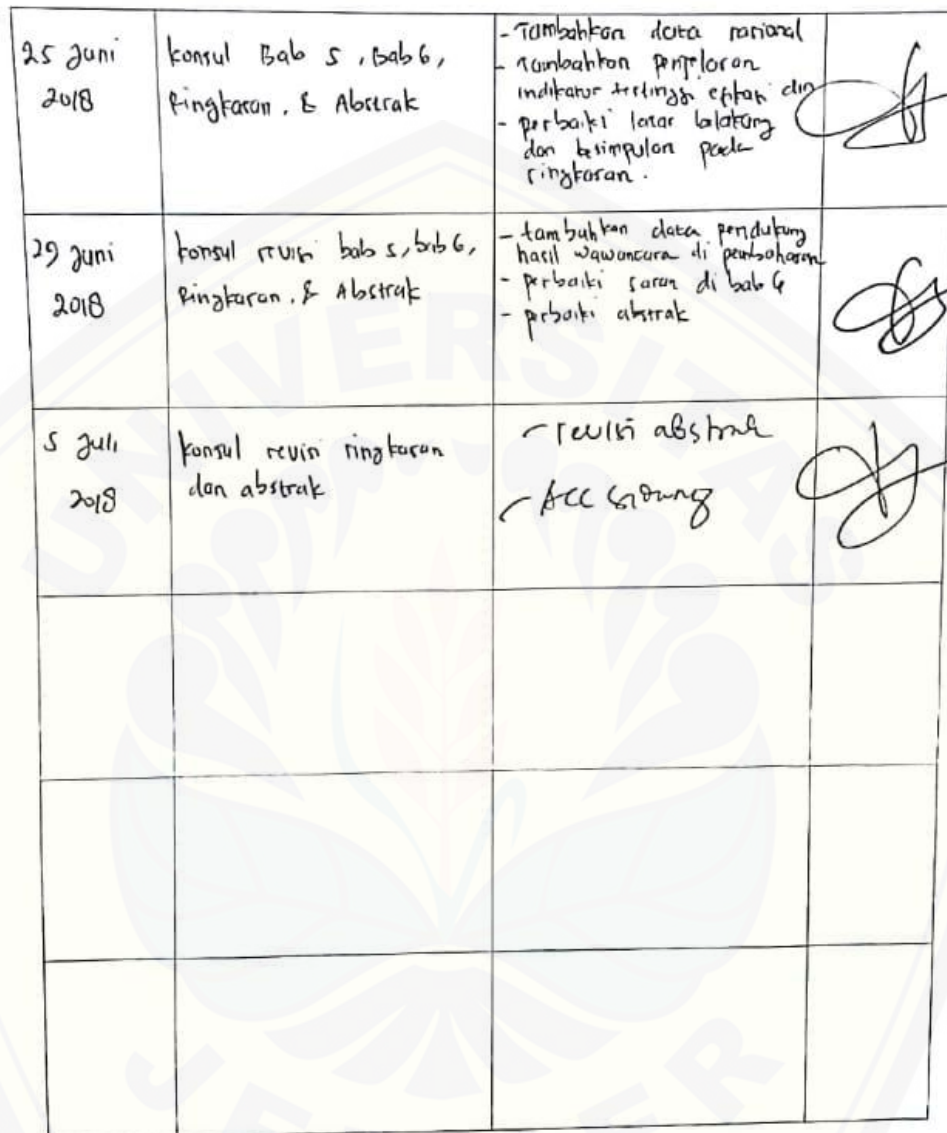 25 Juni
2018
konsul Bab 5, Bab 6,
Ringkasan, & Abstrak
- Tambahkan data nasional
- Tambahkan penjelasan
indikator tertinggi efikasi diri
- perbaiki latar belakang
dan kesimpulan pada
ringkasan.
29 Juni
2018
konsul revisi bab 5, bab 6,
Ringkasan, & Abstrak
- tambahkan data pendukung
hasil wawancara di pembahasan
- perbaiki saran di bab 6
- perbaiki abstrak
5 Juli
2018
konsul revisi ringkasan
dan abstrak
- revisi abstrak
- Acc sidang
UNIVERSITAS
JEMBER